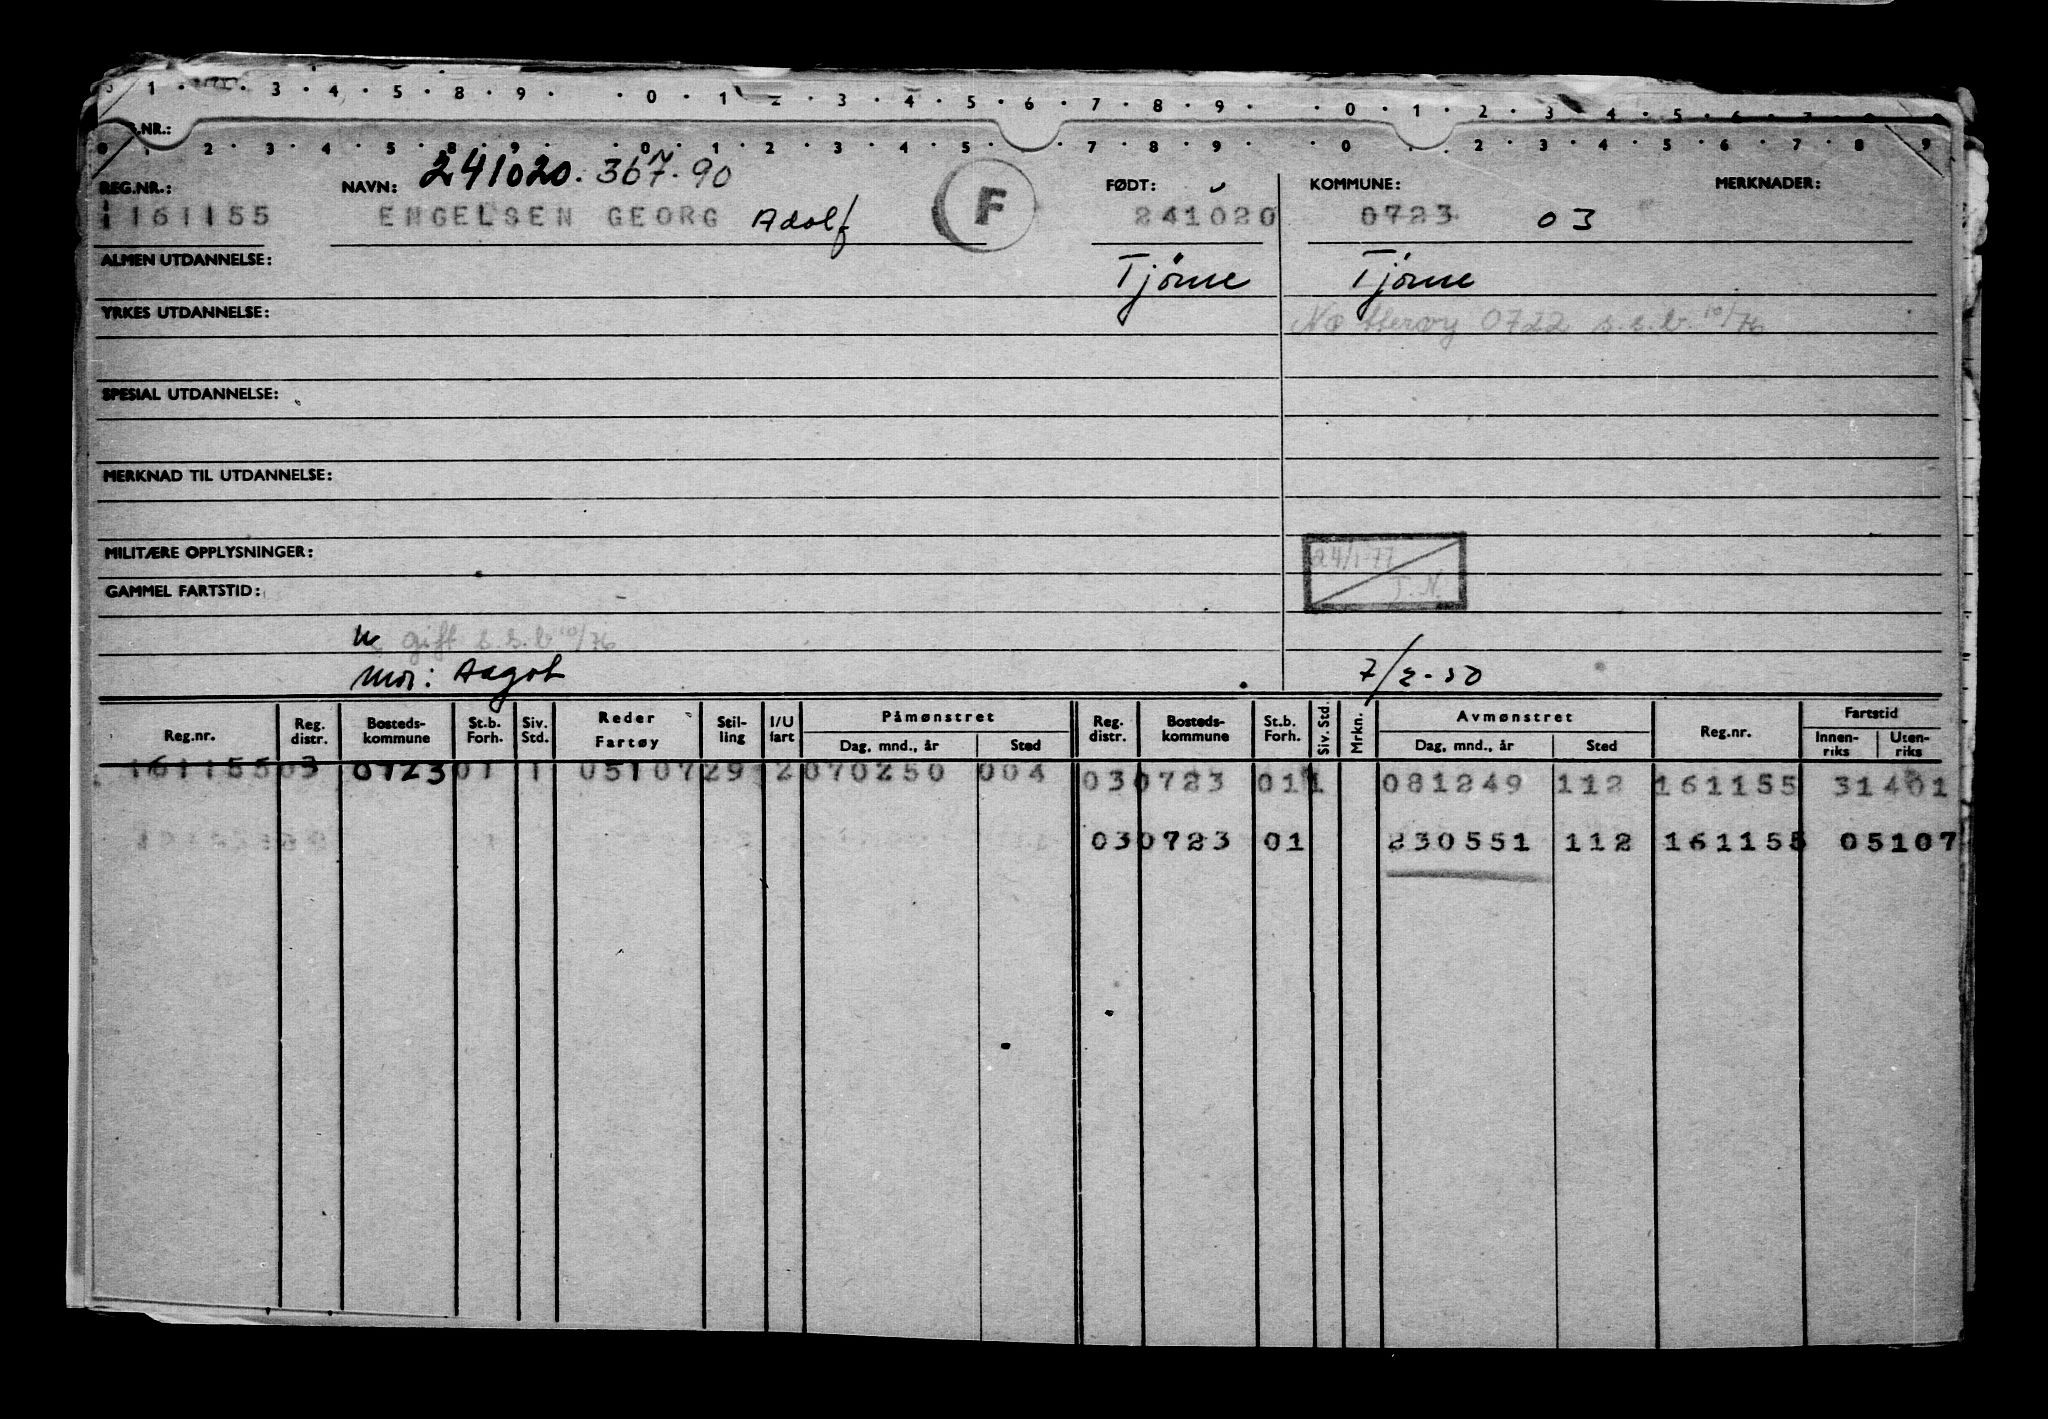 0 1 · · 3 · 4 · 5 · 8 · 9 · · 0 · 1 · 2 · 3 · 4 · 5 · 6 · 7 · 8 · 9 · · 0 · 1 · 2 · 3 · 4 · 5 · 6 · 7 · 8 · 9
G.NR.:
0 1 · 2 · 3 · 4 · 5 · 8 · 9 · · 0 · 1 · 2 · 3 · 4 · 5 · · 7 · 8 · 9 · · 0 · · 2 · 3 · 4 · 5 · 6 · 7 · 8 · 9
241020. 367.90
REG.NR.: NAVN: FØDT: KOMMUNE: MERKNADER:
161155 ENGELSEN GEORG Adolf F 241020 0723 03
ALMEN UTDANNELSE: Tjöme Tjöme
YRKES UTDANNELSE: Nøtterøy 0722 s.s.b. 10/76
SPESIAL UTDANNELSE:
MERKNAD TIL UTDANNELSE:
MILITÆRE OPPLYSNINGER: 24/1-77
GAMMEL FARTSTID: T.N.
gift s.s.b 10/76
Mor: Aagot 7/2-50
Reg.nr. Reg. distr. Bosteds- kommune St.b. Forh. Siv. Std. Reder Fartøy Stil- ling I/U fart Påmønstret Dag, mnd., år Sted Reg. distr. Bosteds- kommune St.b. Forh. Siv. Std. Mrkn. Avmønstret Dag, mnd., år Sted Reg.nr. Fartstid Innen- riks Uten- riks
161155 03 0723 01 1 05107 29 2 070250 004 03 0723 01 1 081249 112 161155 31401
03 0723 01 230551 112 161155 05107